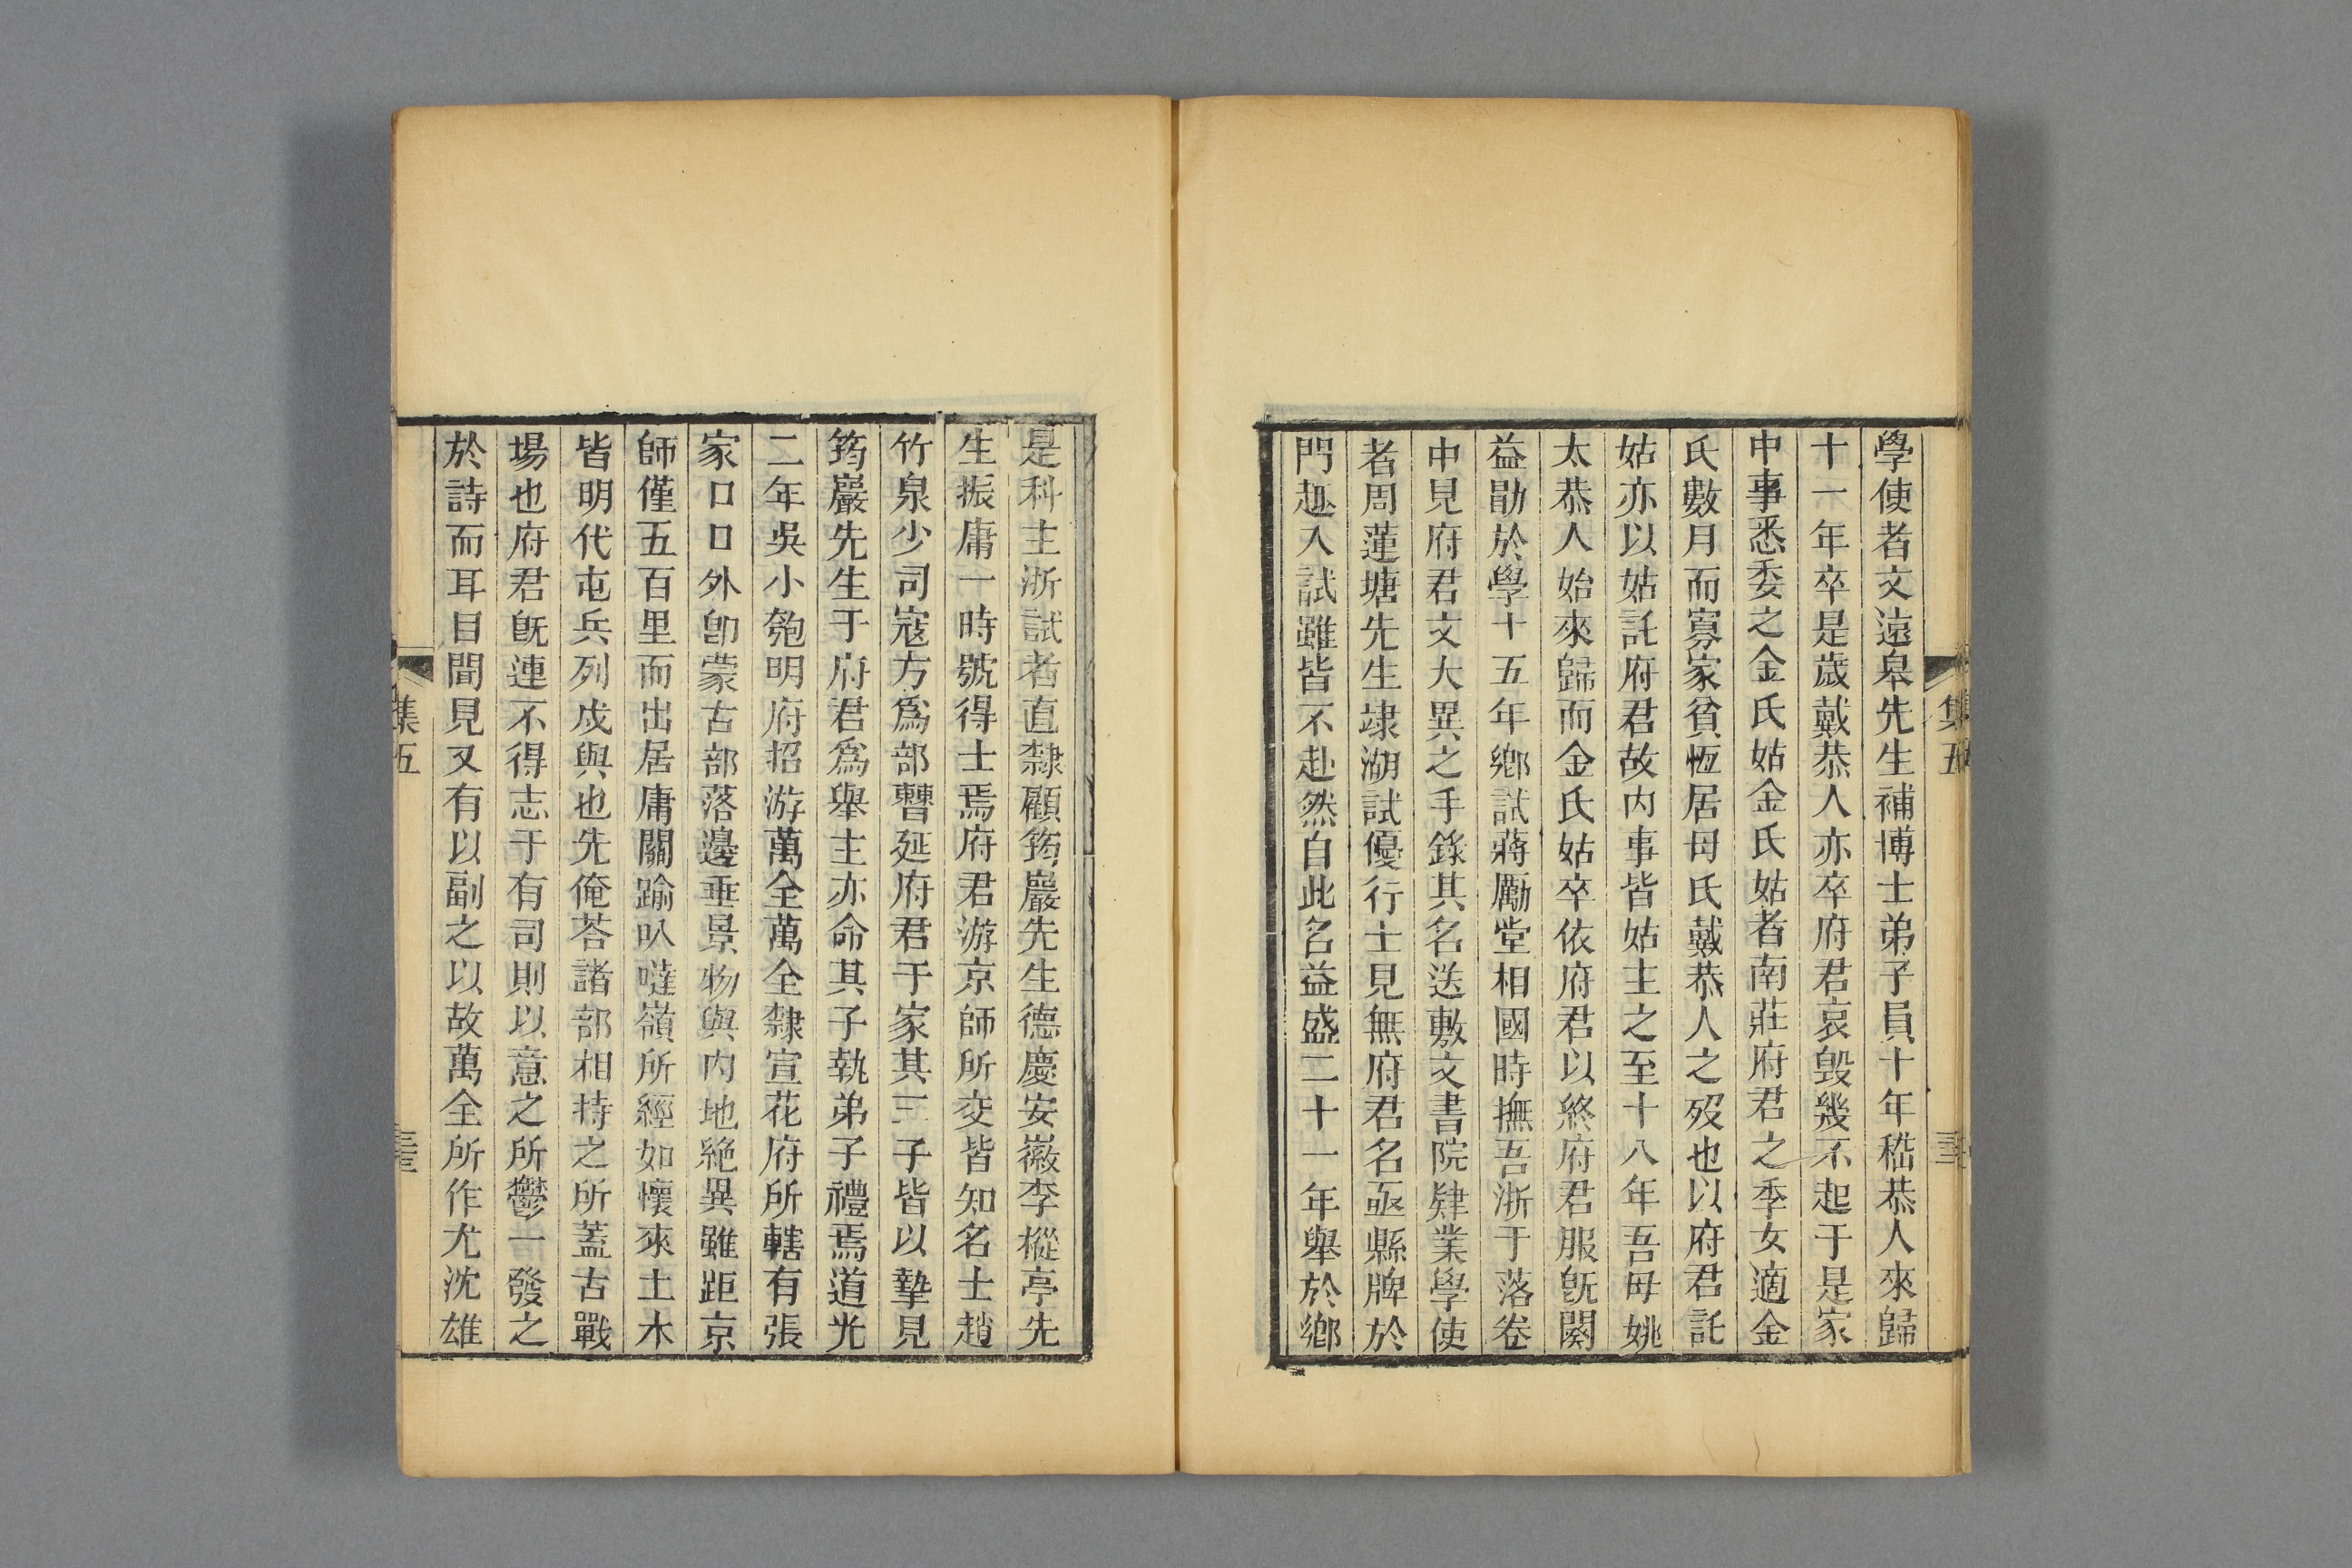 學使者文遠皋先生補博士弟子員十年嵇恭人來歸
十一年卒是歲戴恭人亦卒府君哀毁幾不起于是家
中事悉委之金氏姑金氏姑者南莊府君之季女適金
氏數月而寡家貧恆居母氏戴恭人之歿也以府君託
姑亦以姑託府君故内事皆姑主之至十八年吾母姚
太恭人始來歸而金氏姑卒依府君以終府君服旣闋
益勖於學十五年鄉試蔣勵堂相國時撫吾浙于落卷
中見府君文大異之手錄其名送敷文書院肄業學使
者周蓮塘先生逮湖試優行士見無府君名亟縣牌於
門趣入試雖皆不赴然自此名益盛二十一年舉於鄉
集五
是科主浙試者直隸顧筠巖先生德慶安徽李樅亭先
生振庸一時號得士焉府君游京師所交皆知名士趙
竹泉少司寇方爲部曹延府君于家其三子皆以摯見
筠巖先生于府君爲舉主亦命其子執弟子禮焉道光
二年吳小匏明府招游萬全萬全隸宣花府所轄有張
家口口外卽蒙古部落邊垂景物與内地絶異雖距京
師僅五百里而出居庸關踰叺噠嶺所經如懷來土木
皆明代屯兵列戍與也先俺荅諸部相持之所蓋古戰
場也府君旣連不得志于有司則以意之所鬱一發之
於詩而耳目間見又有以副之以故萬全所作尤沈雄
集五